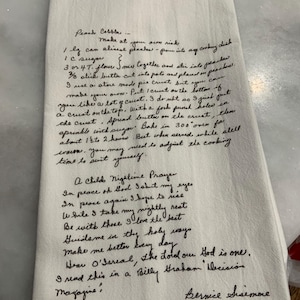 Peach Cobbler
Make at your own risk
1 lg can sliced peaches - pour into cooking dish
1 C. sugar
3 or 4 T. flour } mix together and stir into peaches
3/4 stick butter cut into pats and placed on peaches
I use a store made pie crust but you can
make your own. Put 1 crust on the bottom if
you like a lot of crust. I do not so I just put
a crust on the top. With a fork punch holes in
the crust. Spread butter on the crust, then
sprinkle with sugar. Bake in 305° oven for
about 1 1/2 to 2 hours. But who served while still
warm. you may need to adjust the cooking
time to suit yourself.
A Childs Nighttime Prayer
In peace oh God I shut my eyes
In peace again I hope to rise
While I take my nightly rest
Be with those I love the best
Guide me in thy holy ways
Make me better every day
Hear O'Israel, the Lord our God is one.
I read this in a Billy Graham Decision
Magazine!
Bernice